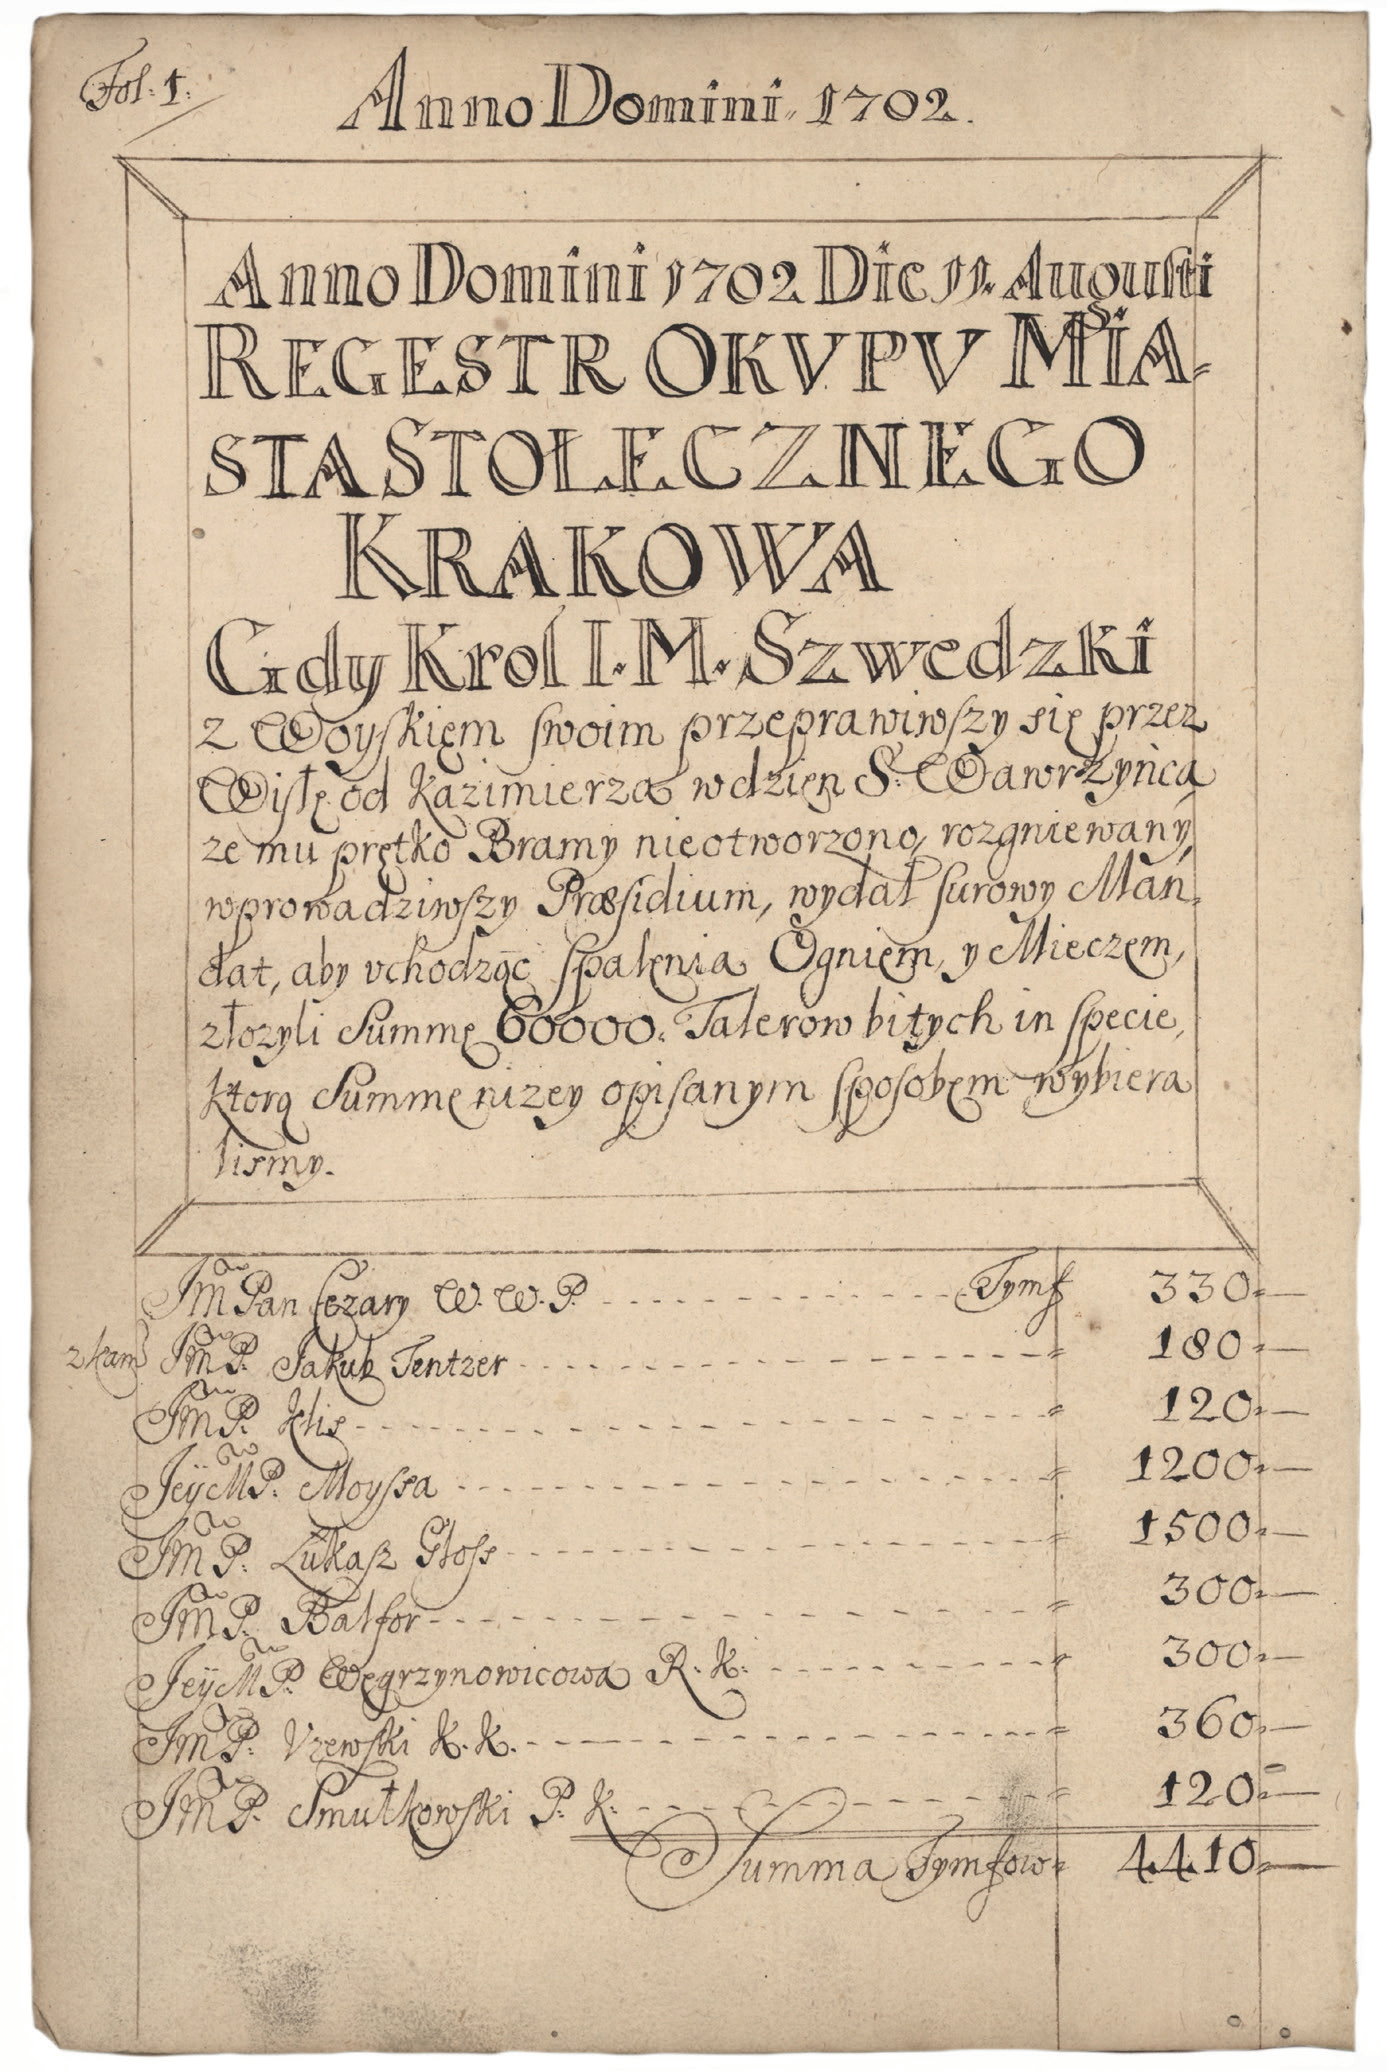 Fol. 1.
Anno Domini 1702.
Anno Domini 1702 Die 11. Augusti
REGESTR OKVPV MIA-
STA STOŁECZNEGO
KRAKOWA
Gdy Krol I. M. Szwedzki
z Woyskięm swoim przeprawiwszy się przez
Wisłę od Kazimierza w dzięn S. Wawrzyńca
ze mu prętko Bramy nieotworzono, rozgniewany,
wprowadziwszy Præsidium, wydał surowy Man-
dat, aby vchodząc spalęnia Ogniem, y Mieczem,
złozyli Summę 60000. Talerow bitych in specie,
ktorą Summę nizey opisanym sposobęm wybiera
lismy.
Jm̃ Pan Cezary W. W. P. Tymf 330
z kam Jm̃ P. Jakub Tentzer 180
Jm̃ P. Klis 120
JeÿM P. Moyssa 1200
Jm̃ P. Łukasz Głoss 1500
Jm̃ P. Balfor 300
JeÿM P. Węgrzynowicowa R. K. 300
Jm̃ P. Vzewski K. K. 360
Jm̃ P. Smutkowski P. K. 120
Summa Tymfow 4410